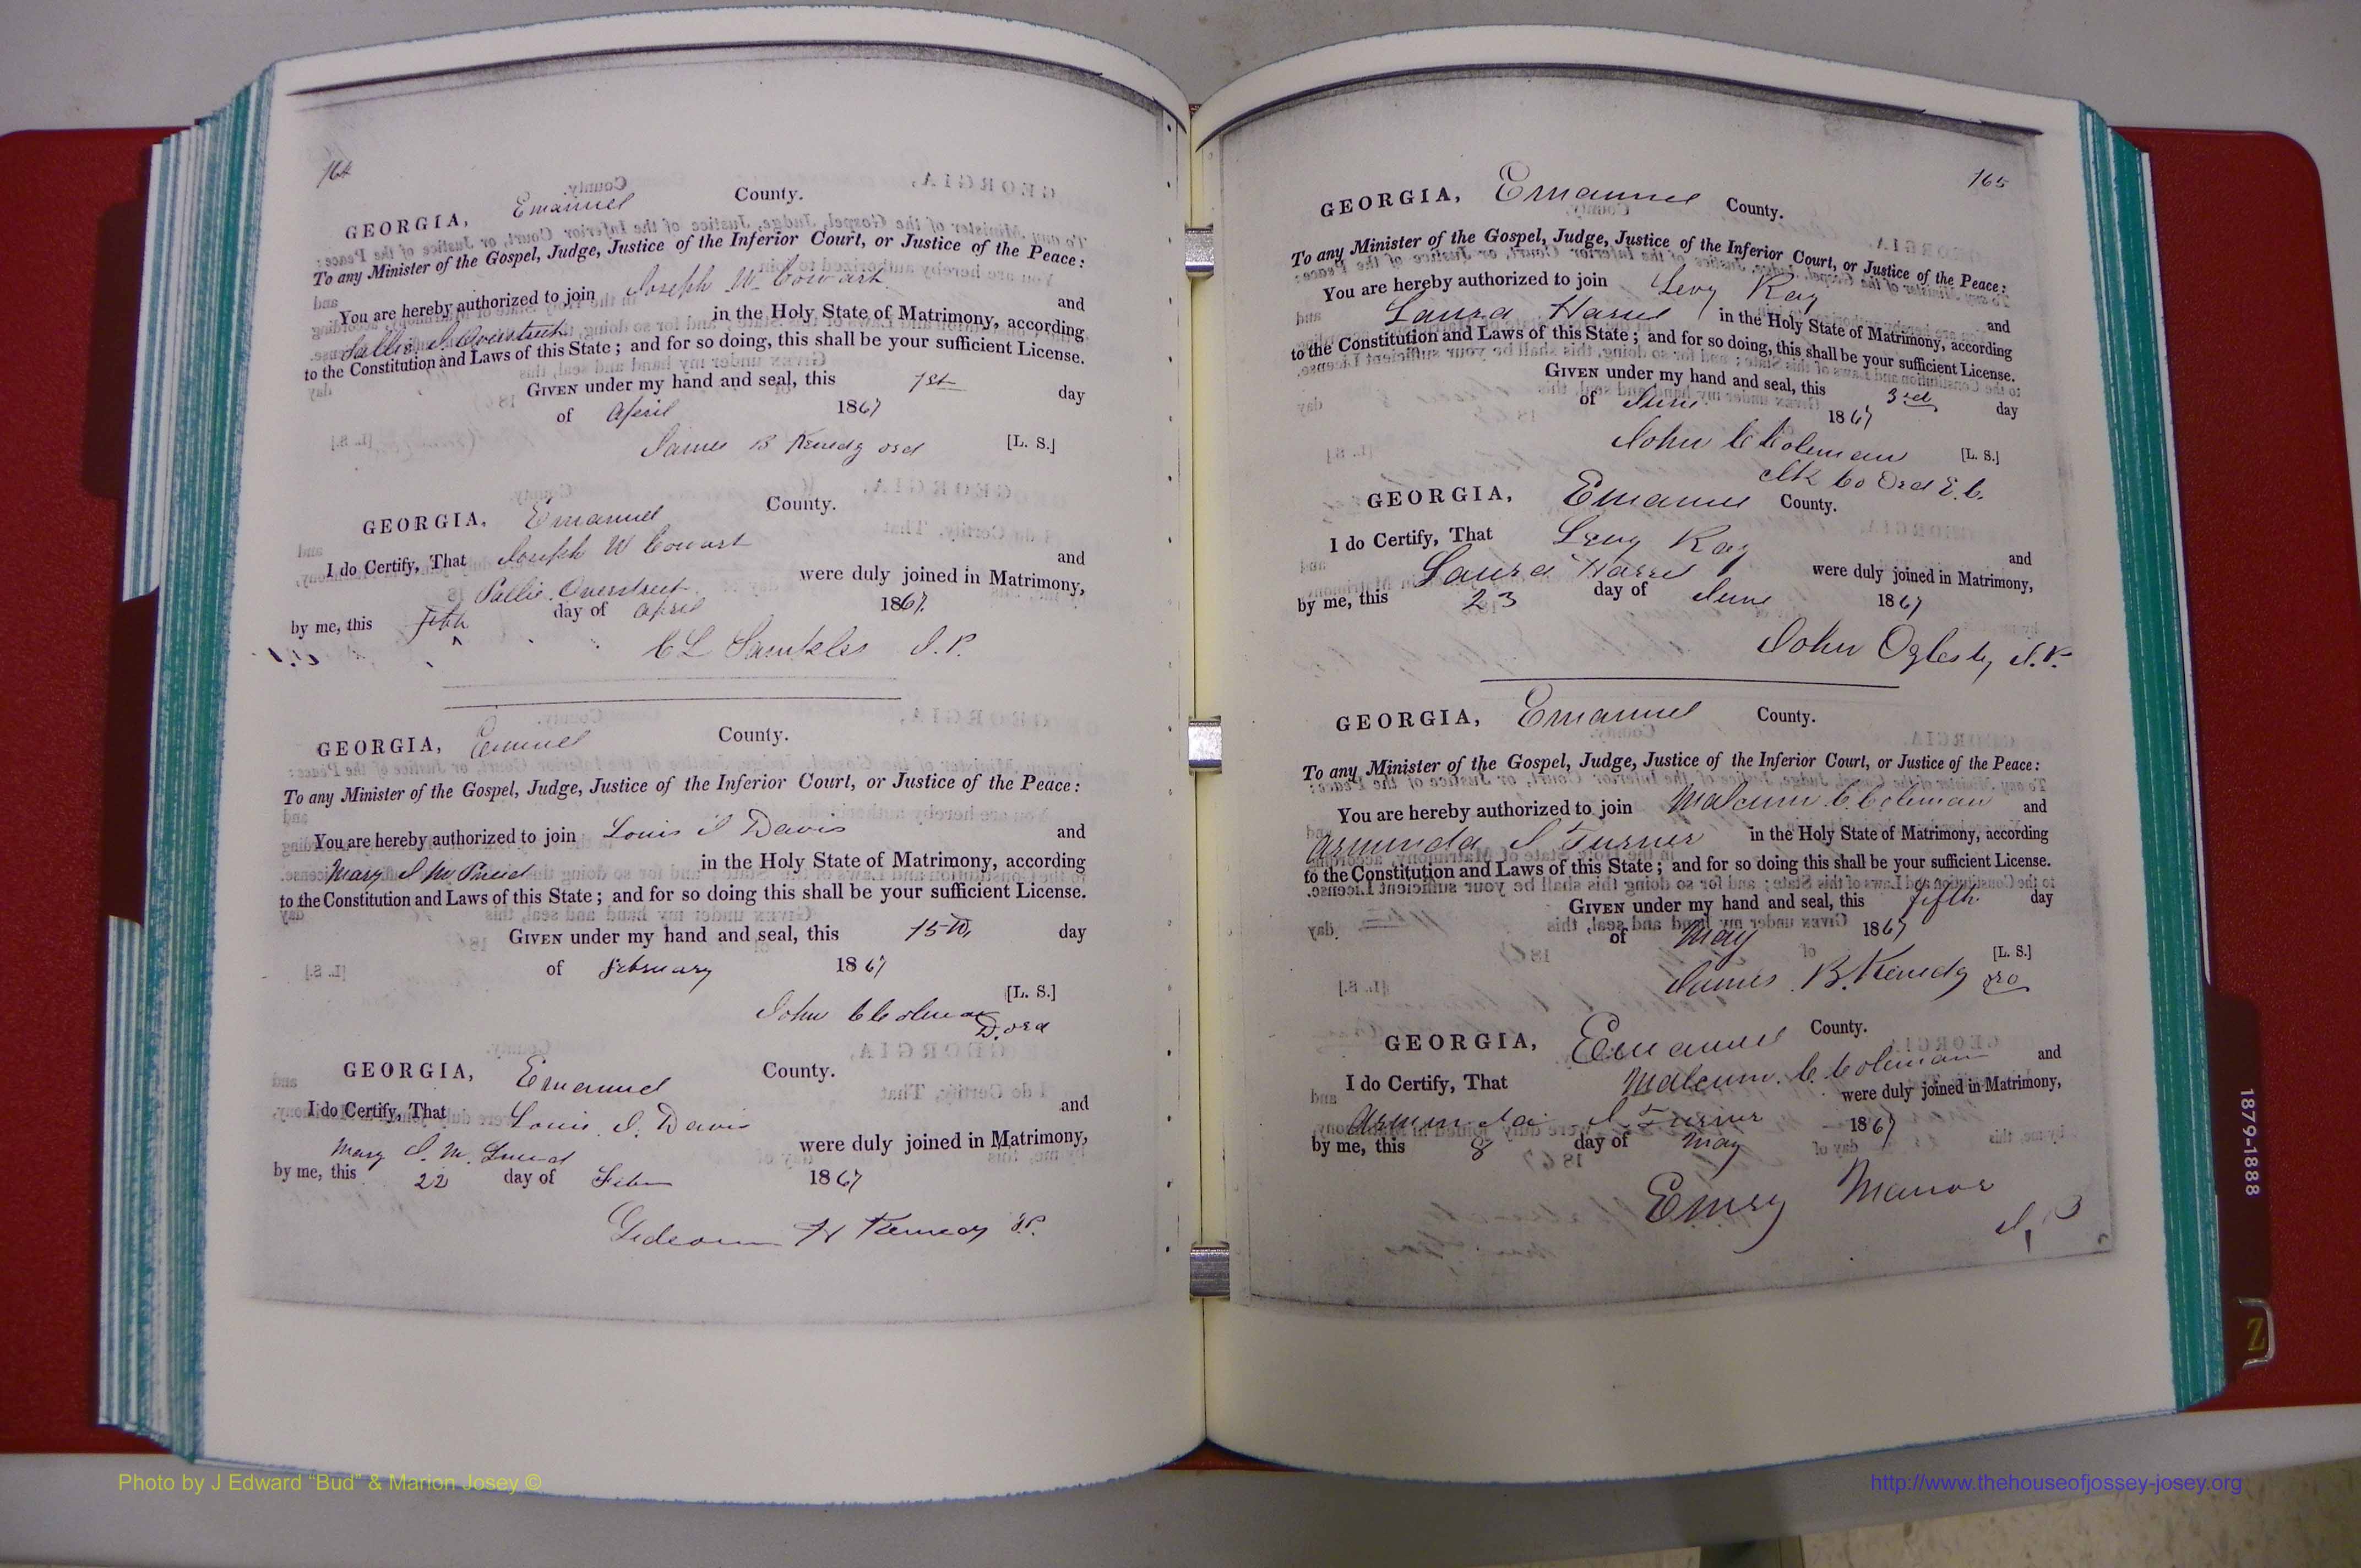 164
GEORGIA, Emanuel County.
To any Minister of the Gospel, Judge, Justice of the Inferior Court, or Justice of the Peace:
You are hereby authorized to join Joseph W. Cowart and
Sallie J. Overstreet in the Holy State of Matrimony, according
to the Constitution and Laws of this State; and for so doing, this shall be your sufficient License.
GIVEN under my hand and seal, this 1st day
of April 1867
James B Kenedy ord [L. S.]
GEORGIA, Emanuel County.
I do Certify, That Joseph W Cowart and
Sallie. Overstreet were duly joined in Matrimony,
by me, this fifth day of April 1867.
C L J.P.
GEORGIA, Emanuel County.
To any Minister of the Gospel, Judge, Justice of the Inferior Court, or Justice of the Peace:
You are hereby authorized to join Louis J Davis and
Mary J in the Holy State of Matrimony, according
to the Constitution and Laws of this State; and for so doing this shall be your sufficient License.
GIVEN under my hand and seal, this 15th, day
of February 1867
[L. S.]
John C Coleman D. ord
GEORGIA, Emanuel County.
I do Certify, That Louis. J. Davis and
Mary J. M. were duly joined in Matrimony,
by me, this 22 day of 1867
Gideon H Kenedy J.P.
165
GEORGIA, Emanuel County.
To any Minister of the Gospel, Judge, Justice of the Inferior Court, or Justice of the Peace:
You are hereby authorized to join Levy Kay and
Laura in the Holy State of Matrimony, according
to the Constitution and Laws of this State; and for so doing, this shall be your sufficient License.
GIVEN under my hand and seal, this 3rd day
of June 1867
John C Coleman [L. S.]
Clk Co Ord E. C.
GEORGIA, Emanuel County.
I do Certify, That Levy Kay and
Laura were duly joined in Matrimony,
by me, this 23 day of June 1867
John Oglesby J.P.
GEORGIA, Emanuel County.
To any Minister of the Gospel, Judge, Justice of the Inferior Court, or Justice of the Peace:
You are hereby authorized to join Malcum C. Coleman and
Arminda J Turner in the Holy State of Matrimony, according
to the Constitution and Laws of this State; and for so doing this shall be your sufficient License.
GIVEN under my hand and seal, this fifth day
of May 1867
[L. S.]
James B. Kenedy ord
GEORGIA, Emanuel County.
I do Certify, That Malcum. C. Coleman and
Arminda J Turner were duly joined in Matrimony,
by me, this 8 day of May 1867
Emry
J P
1879-1888
Z
Photo by J Edward “Bud” & Marion Josey ©
http://www.thehouseofjossey-josey.org